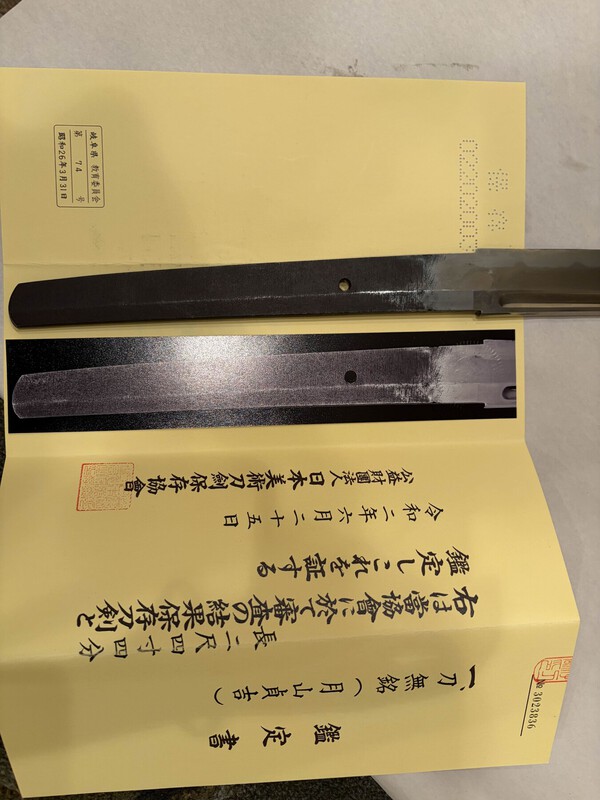 鑑定書
№ 3023836
一、刀 無銘(月山貞吉)
長 二尺四寸四分
右は當協會に於て審査の結果保存刀剣と
鑑定しこれを証する
令和二年六月二十五日
公益財團法人日本美術刀劍保存協會
岐阜県 教育委員会
第 74 号
昭和26年3月31日